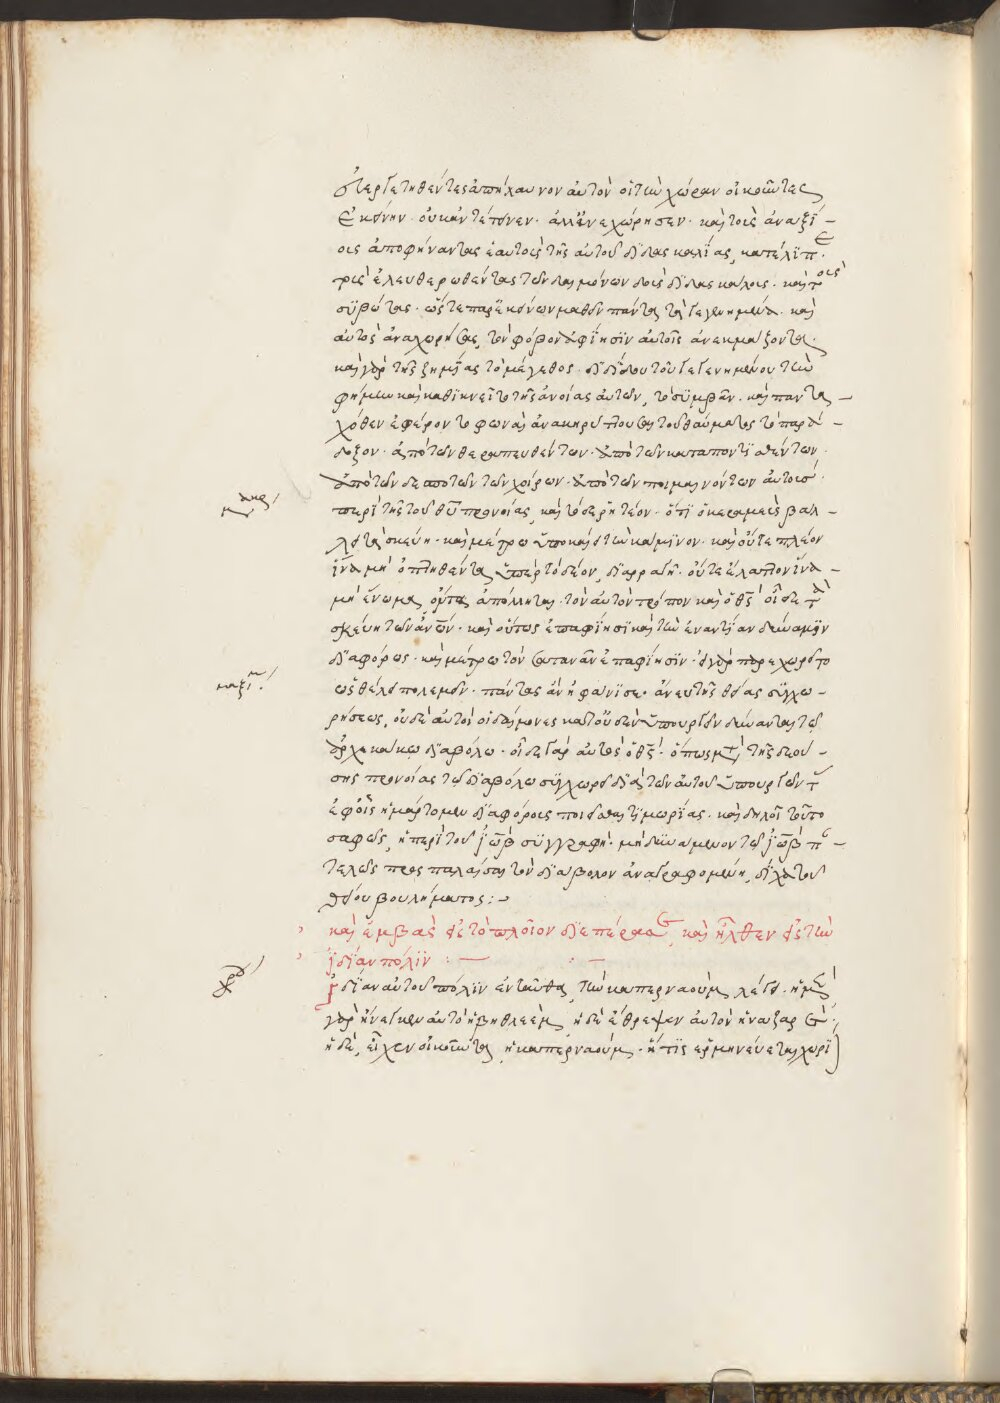 ὅτε εὐεργετηθέντες ἀπήλαυνον αὐτὸν οἱ τὴν χώραν οἰκοῦντες
ἐκείνην· οὐκ ἀντέτεινεν· ἀλλ' ἀνεχώρησεν· καὶ τοὺς ἀναξί-
ους ἀποφήναντας ἑαυτοὺς τῆς αὐτοῦ διδασκαλίας, κατέλιπε·
τοὺς ἐλευθερωθέντας τῶν δαιμόνων δοὺς διδασκάλους· καὶ τοὺς
συβώτας· ὥστε παρ' ἐκείνων μαθεῖν πάντα τὰ γεγενημένα· καὶ
αὐτὸς ἀναχωρήσας, τὸν φόβον ἀφίησιν αὐτοῖς ἀνεκμάζοντα·
καὶ γὰρ τῆς ζημίας τὸ μέγεθος· διεδίδου τοῦ γεγενημένου τὴν
φήμην καὶ καθικνεῖτο τῆς ἀνοίας αὐτῶν, τὸ συμβᾶν· καὶ παντα-
χόθεν ἐφέροντο φωναὶ ἀνακηρύττουσαι τοῦ θαύματος τὸ παρά-
δοξον· ἀπὸ τῶν θεραπευθέντων· ἀπὸ τῶν καταποντισθέντων·
ἀπὸ τῶν δεσποτῶν τῶν χοίρων· ἀπὸ τῶν ποιμαινόντων αὐτούς·
μακρ
περὶ τῆς τοῦ θῦ προνοίας, καὶ τόδε ῥητέον· ὅτι ὁ κεραμεὺς βαλ-
λει τὰ σκεύη· καὶ μέτρῳ ὑποκαίει τὴν κάμινον· καὶ οὔτε πλέον
ἵνα μὴ ὀπτηθέντα ὑπὲρ τὸ δέον, διαρραγῇ· οὔτε ἔλαττον ἵνα
μὴ ἔνωμα ὄντα ἀπόλληται· τὸν αὐτὸν τρόπον καὶ ὁ θς οἶδε τὰ
σκεύη τῶν ἀνῶν· καὶ οὕτως ἐπαφίησι καὶ τὴν ἐναντίαν δύναμιν
διαφόρως· καὶ μέτρῳ τὸν σατανᾶν ἐπαφίησιν· εἰ γὰρ παρεχωρεῖτο
μαξιμ
ὡς θέλει πολεμεῖν· πάντας ἂν ἠφάνισε· ἄνευ τῆς θείας συγχω-
ρήσεως, οὐδὲ αὐτοὶ οἱ δαίμονες κατ' οὐδὲν ὑπουργεῖν δύνανται τῷ
ἀρχεκάκῳ διαβόλῳ· οἶδε γὰρ αὐτὸς ὁ θς· ὅπως μετὰ τῆς δεού-
σης προνοίας τῷ διαβόλῳ συγχωρεῖ διὰ τῶν αὐτοῦ ὑπουργῶν τὴν
ἐφ' οἷς ἡμάρτομεν διαφόροις ποιεῖσθαι τιμωρίας· καὶ δηλοῖ τοῦτο
σαφῶς, ἡ περὶ τοῦ ἰὼβ συγγραφή· μὴ δυνάμενον τῷ ἰὼβ παν-
τελῶς προσπαλαῖσαι τὸν διάβολον ἀναγραφομένη, δίχα τοῦ
θείου βουλήματος:
καὶ ἐμβὰς εἰς τὸ πλοῖον διεπέρασε, καὶ ἦλθεν εἰς τὴν
ἰδίαν πόλιν:
χρυ
ἰδίαν αὐτοῦ πόλιν ἐνταῦθα, τὴν καπερναοὺμ λέγει· ἡ μὲν
γὰρ ἤνεγκεν αὐτὸν ἡ βηθλεὲμ, ἡ δὲ ἔθρεψεν αὐτὸν ἡ ναζαρέτ·
ἡ δὲ, εἶχεν οἰκοῦντα, ἡ καπερναούμ· ἥτις ἑρμηνεύεται χωρί